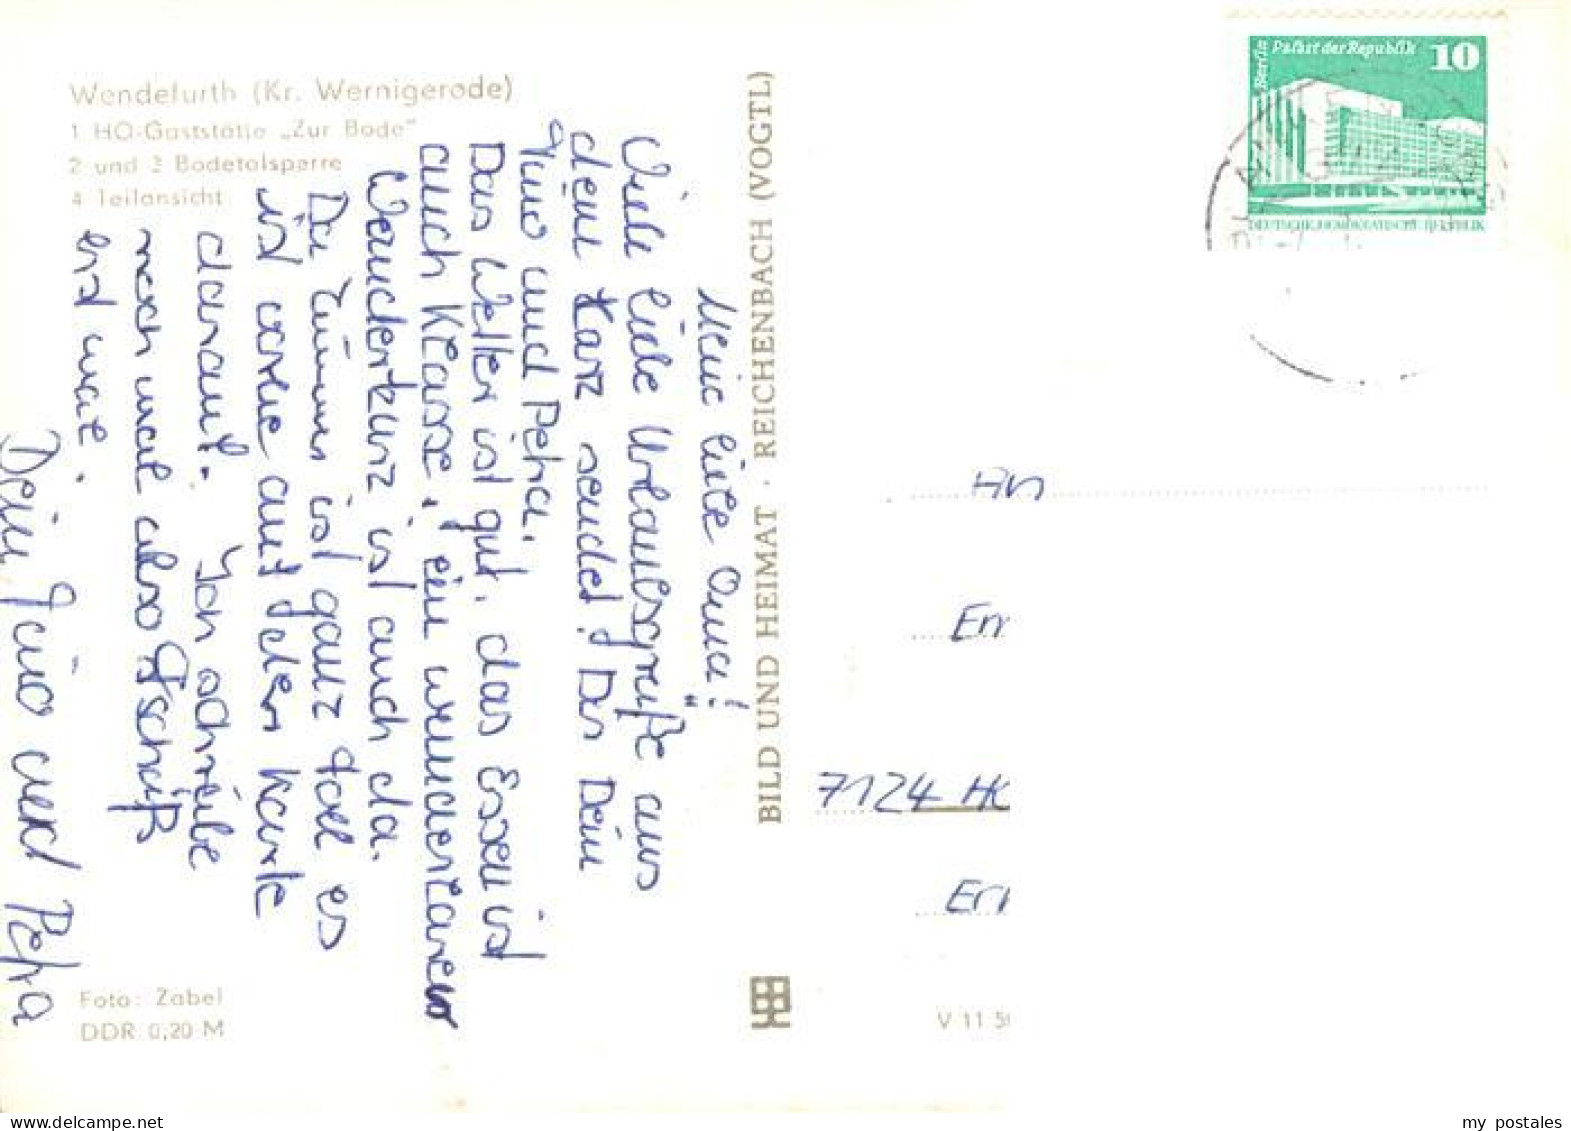 Wendefurth (Kr. Wernigerode)
1 HO-Gaststätte „Zur Bode"
2 und 3 Bodetalsperre
4 Teilansicht
Meine liebe Oma!
Viele liebe Urlaubsgrüße aus
dem Harz sendet Dir Dein
und Petra.
Das Wetter ist gut, das Essen ist
auch Klasse, ein wunderbarer
ist auch da.
Das Zimmer ist ganz toll es
ist vorne auf der Karte
darauf. Ich schreibe
noch mal also Tschüß
erst mal.
Dein und Petra
Foto: Zabel
DDR 0,20 M
BILD UND HEIMAT · REICHENBACH (VOGTL)
V 11 50
Berlin Palast der Republik
10
DEUTSCHE DEMOKRATISCHE REPUBLIK
An
Err
7124 Ho
Err
my postales